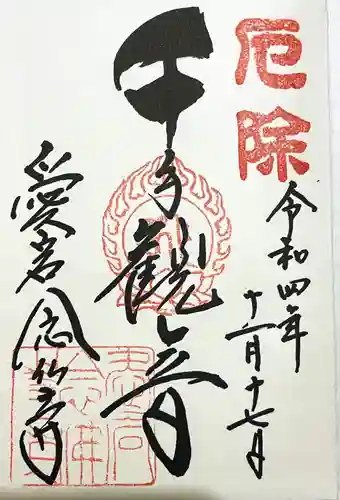 厄除
令和四年
十二月十七日
千手観音
愛宕念仏寺